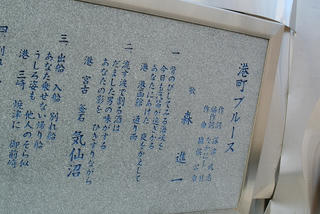 港町ブルース
作詞 深津 武志
補作詞 なかにし礼
作曲 猪俣 公章
歌 森 進一
一 背のびして見る海峡を
今日も汽笛が遠ざかる
あなたにあげた 夜をかえして
港 港函館 通り雨
二 流す涙で割る酒は
だました男の味がする
あなたの影を ひきずりながら
港 宮古 釜石 気仙沼
三 出船 入船 別れ船
あなた乗せない帰り船
うしろ姿も 他人のそら似
港 三崎 焼津に 御前崎
四